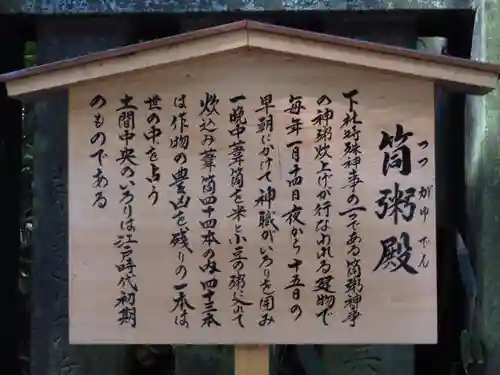 筒粥殿
つつがゆでん
下社特殊神事の一つである筒粥神事
の神粥炊上げが行なわれる建物で
毎年一月十四日夜から十五日の
早朝にかけて神職がいろりを囲み
一晩中葦筒を米と小豆の粥込れて
炊込み葦筒四十四本の内四十三本
は作物の豊凶を残りの一本は
世の中を占う
土間中央のいろりは江戸時代初期
のものである